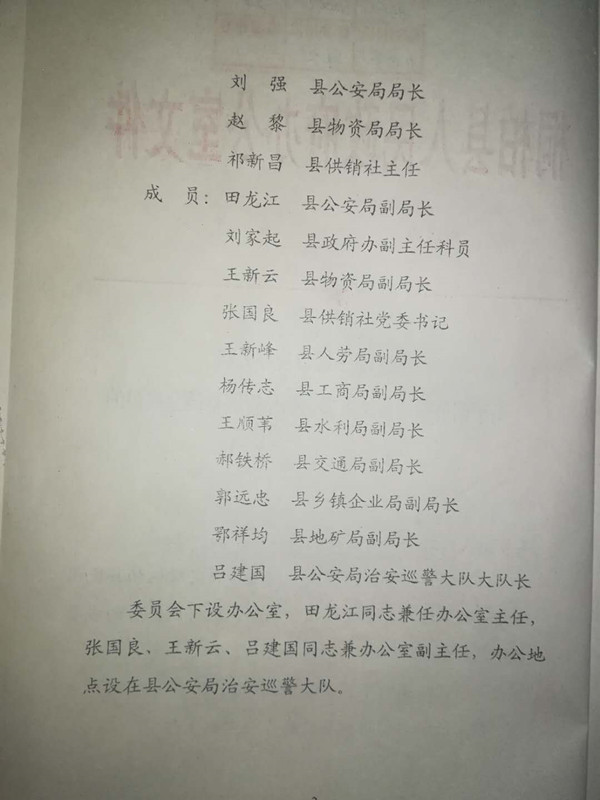 刘　强　县公安局局长
赵　黎　县物资局局长
祁新昌　县供销社主任
成　员：田龙江　县公安局副局长
刘家起　县政府办副主任科员
王新云　县物资局副局长
张国良　县供销社党委书记
王新峰　县人劳局副局长
杨传志　县工商局副局长
王顺苇　县水利局副局长
郝铁桥　县交通局副局长
郭远忠　县乡镇企业局副局长
鄂祥均　县地矿局副局长
吕建国　县公安局治安巡警大队大队长
委员会下设办公室，田龙江同志兼任办公室主任，
张国良、王新云、吕建国同志兼办公室副主任，办公地
点设在县公安局治安巡警大队。